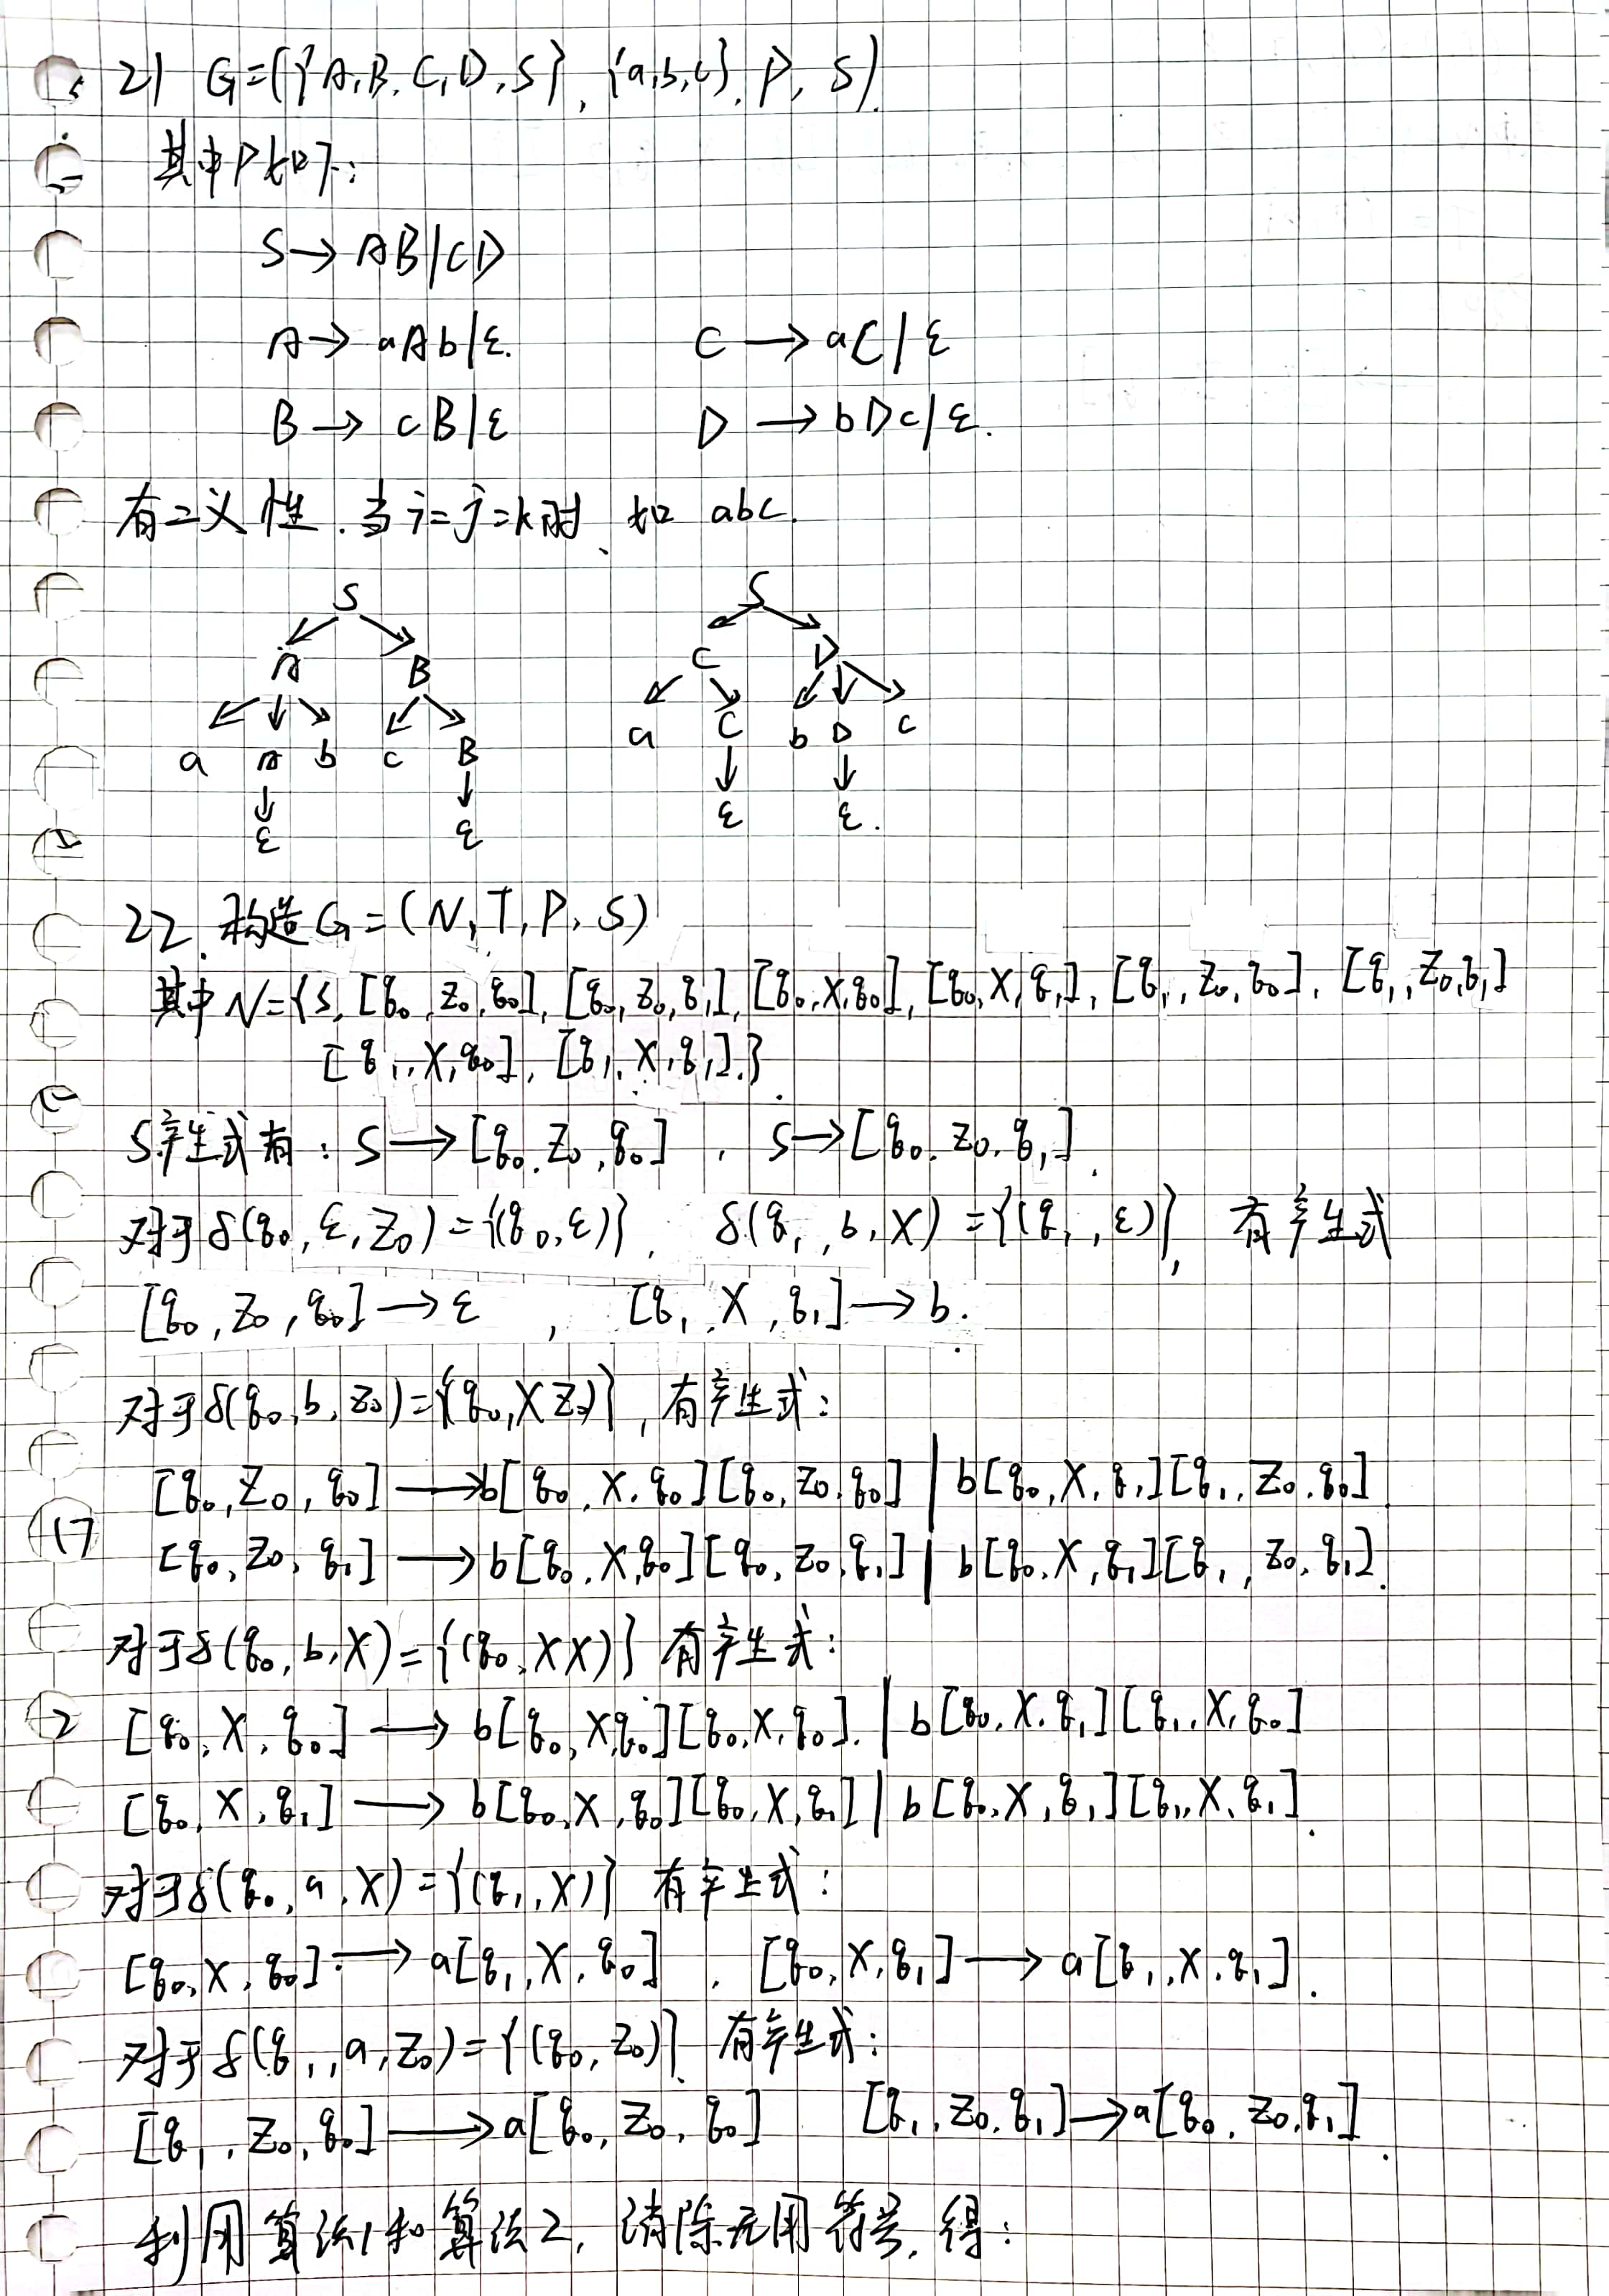 21 G=({A,B,C,D,S},{a,b,c},P,S).
其中P如下:
S→AB|CD
A→aAb|ε. C→aC|ε
B→cB|ε D→bDc|ε.
有二义性.当i=j=k时、如 abc.
S S
A B C D
a A b c B a C b D c
ε ε ε ε.
22.构造G=(N,T,P,S)
其中N={S,[q₀,Z₀,q₀],[q₀,Z₀,q₁],[q₀,X,q₀],[q₀,X,q₁],[q₁,Z₀,q₀],[q₁,Z₀,q₁]
[q₁,X,q₀],[q₁,X,q₁]}.
S产生式有:S→[q₀,Z₀,q₀],S→[q₀,Z₀,q₁].
对于δ(q₀,ε,Z₀)={(q₀,ε)},δ(q₁,b,X)={(q₁,ε)},有产生式
[q₀,Z₀,q₀]→ε,[q₁,X,q₁]→b.
对于δ(q₀,b,Z₀)={(q₀,XZ₀)},有产生式:
[q₀,Z₀,q₀]→b[q₀,X,q₀][q₀,Z₀,q₀]|b[q₀,X,q₁][q₁,Z₀,q₀]
[q₀,Z₀,q₁]→b[q₀,X,q₀][q₀,Z₀,q₁]|b[q₀,X,q₁][q₁,Z₀,q₁].
对于δ(q₀,b,X)={(q₀,XX)}有产生式:
[q₀,X,q₀]→b[q₀,X,q₀][q₀,X,q₀].|b[q₀,X,q₁][q₁,X,q₀]
[q₀,X,q₁]→b[q₀,X,q₀][q₀,X,q₁]|b[q₀,X,q₁][q₁,X,q₁].
对于δ(q₀,a,X)={(q₁,X)}有产生式:
[q₀,X,q₀]→a[q₁,X,q₀],[q₀,X,q₁]→a[q₁,X,q₁].
对于δ(q₁,a,Z₀)={(q₀,Z₀)}.有产生式:
[q₁,Z₀,q₀]→a[q₀,Z₀,q₀] [q₁,Z₀,q₁]→a[q₀,Z₀,q₁].
利用算法1和算法2,消除无用符号,得: